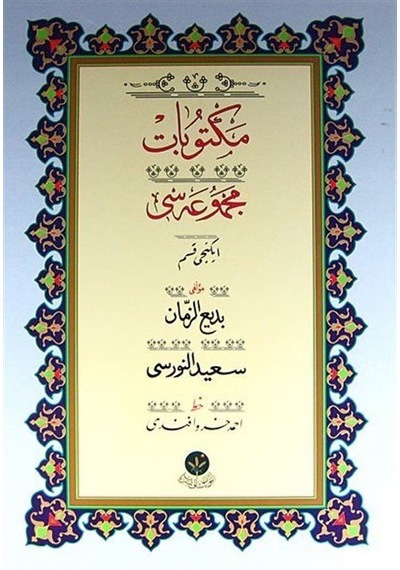 مكتوبات
مجموعه سى
ايكنجى قسم
مؤلفى
بديع الزمان
سعيد النورسى
خط
احمد خسرو افندى